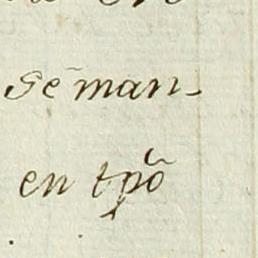 sẽman-
en tpõ